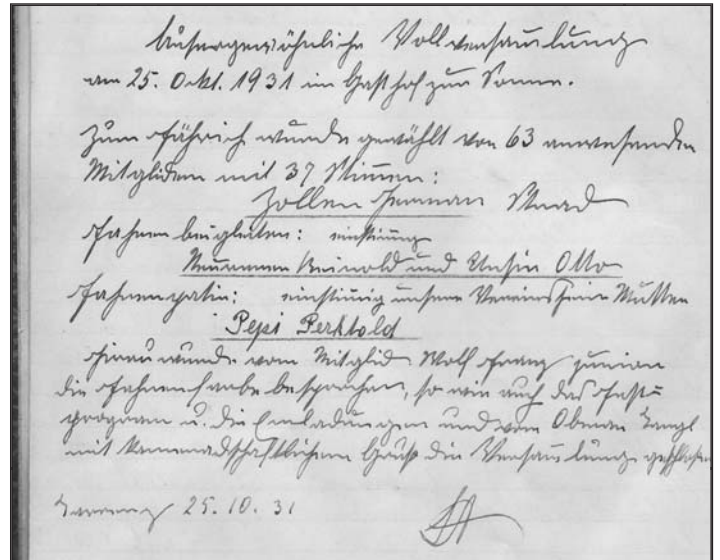 Außergewöhnliche Vollversammlung
am 25. Okt. 1931 im Gasthof zur Sonne.
Zum Fähnrich wurde gewählt von 63 anwesenden
Mitgliedern mit 37 Stimmen:
Zoller Herman
Fahnenbeigleiter: einstimig
Reinold und Unsin Otto
Fahnenpatin: einstimig unsere Vereins Mutter
Pepi Perktold
Hierau wurde vom Mitglid Wolf Franz junior
die Fahnenfarbe besprochen, so wie auch das Fest=
program u. die Einladungen und vom Obman Tangl
mit kameradschaftlichem Gruß die Versamlung geschlossen
25.10.31